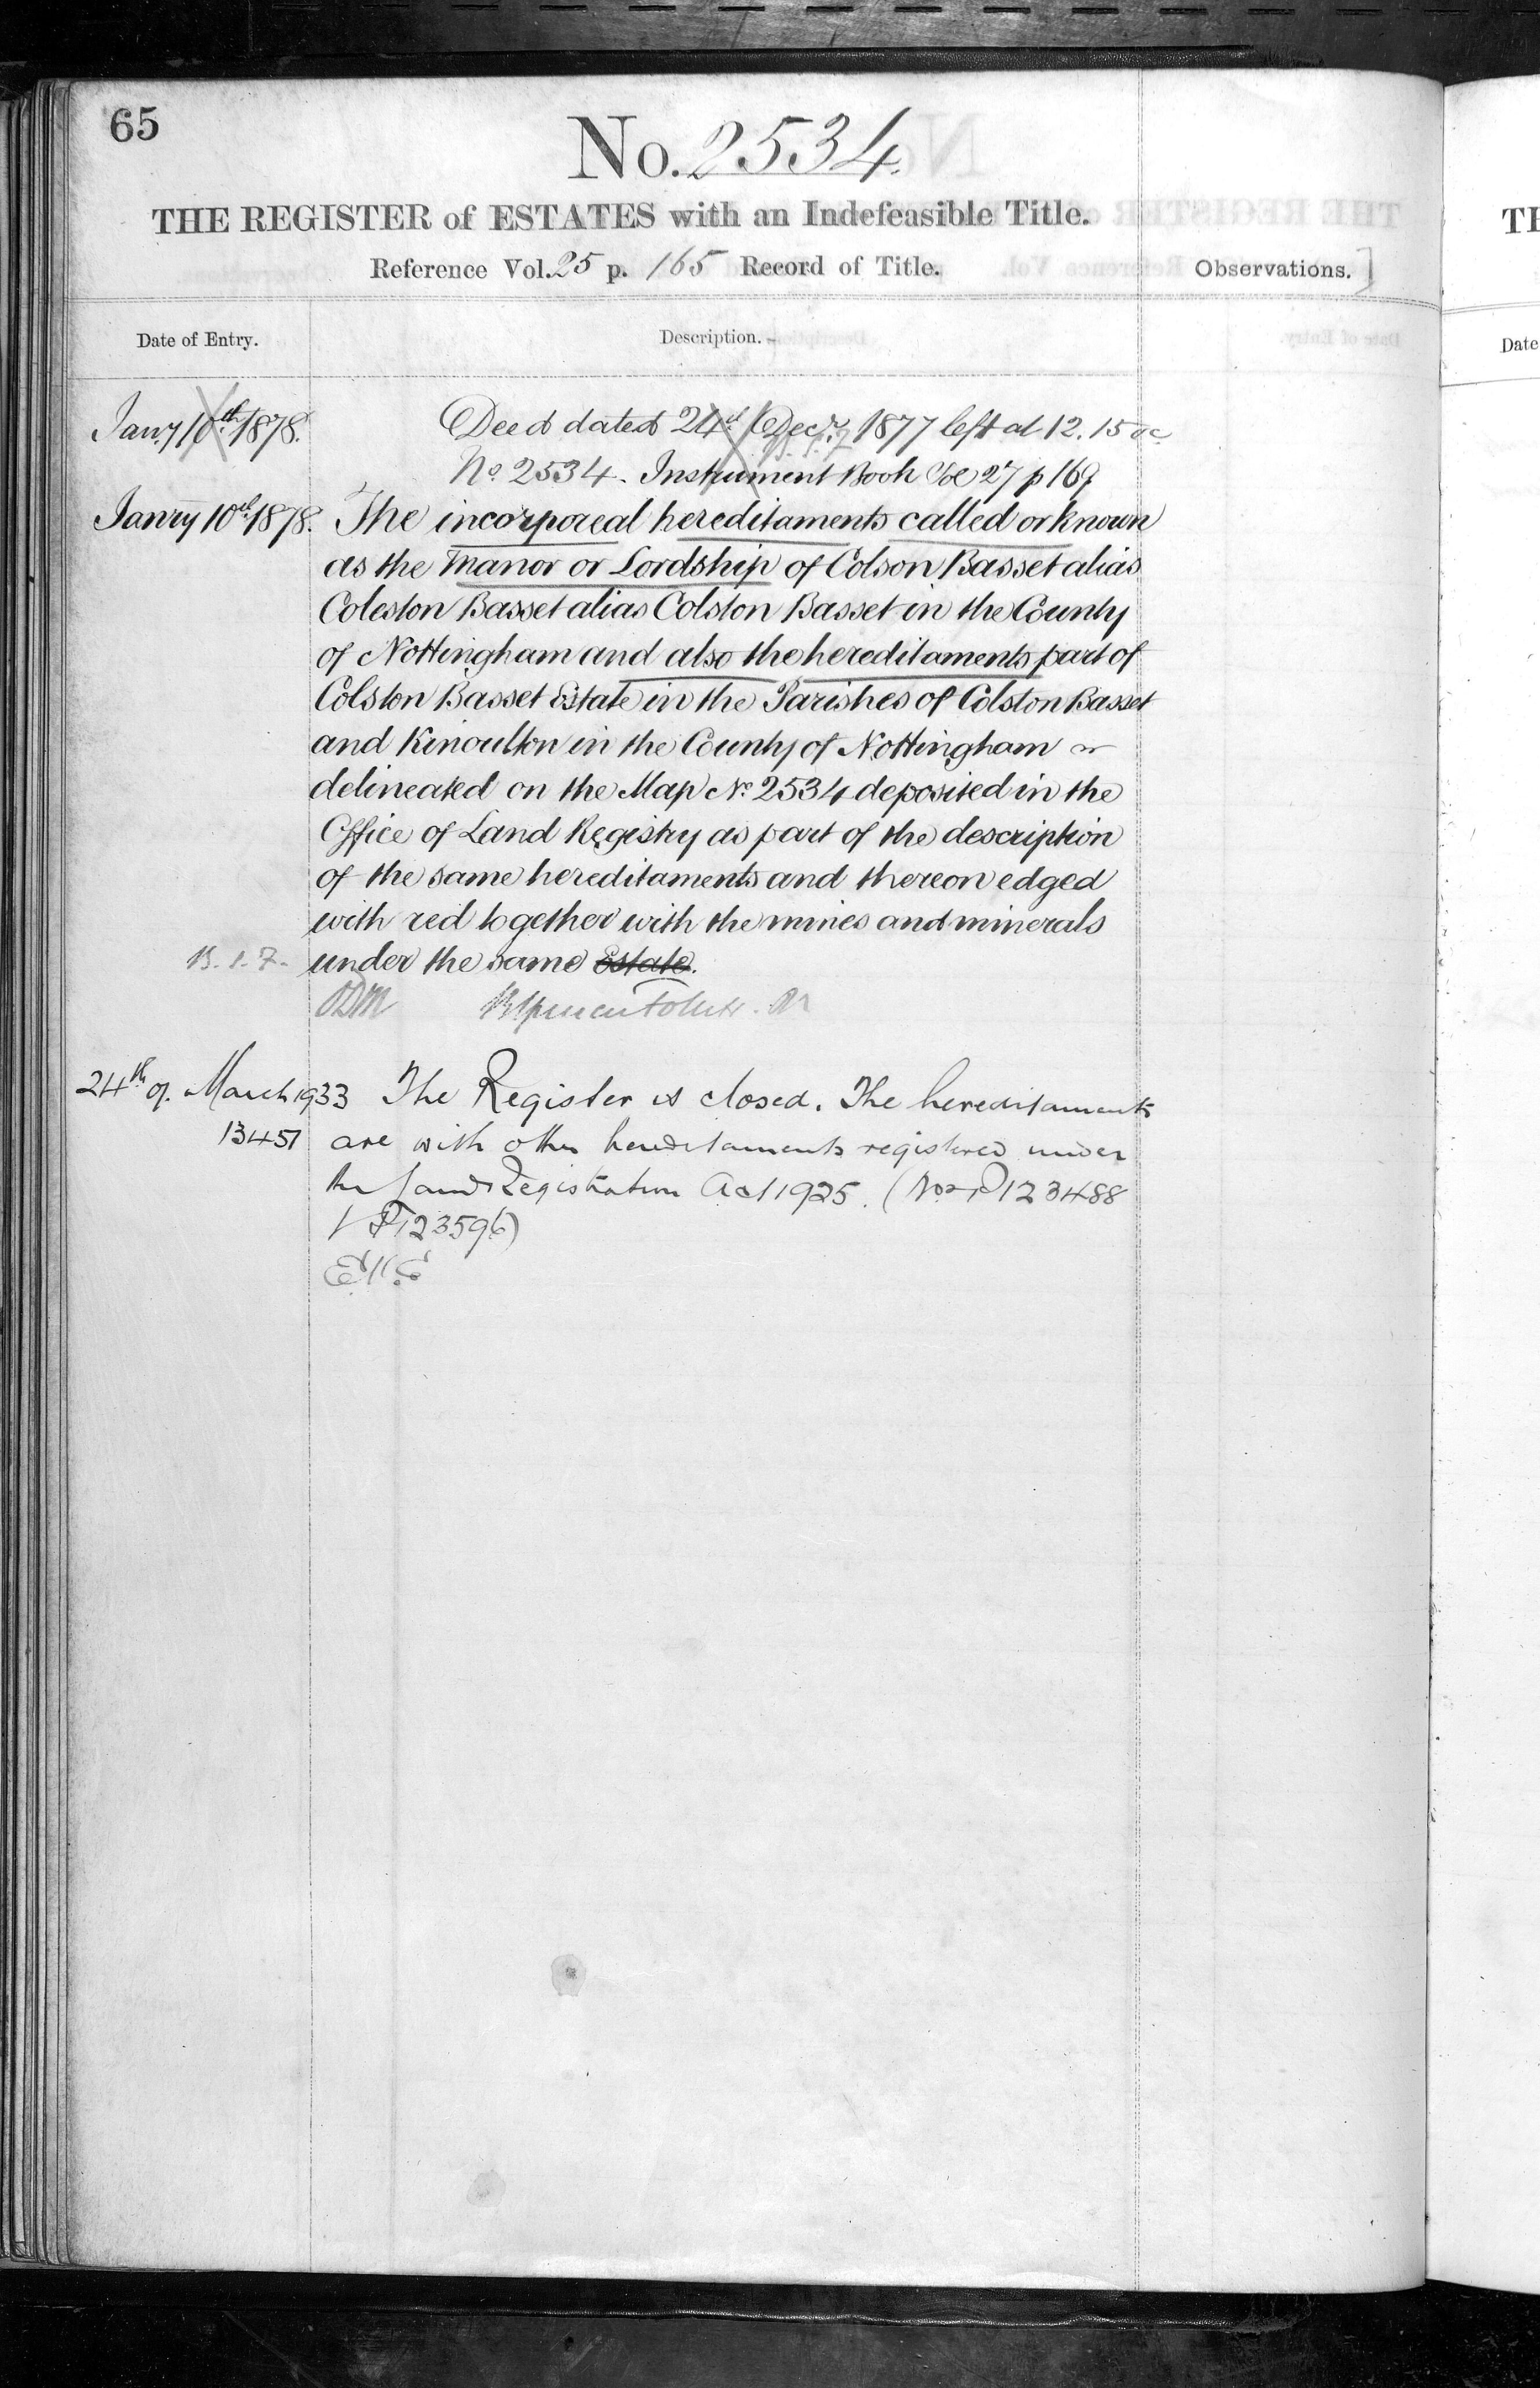 65
No. 2534.
THE REGISTER of ESTATES with an Indefeasible Title.
Reference Vol. 25 p. 165 Record of Title.
Observations.]
Date of Entry.
Description.
Jany 10th 1878.
Deed dated 24th Decr. 1877 left at 12.15 oc
No. 2534. Instrument Book Vol 27 p 169
Janry 10th 1878. The incorporeal hereditaments called or known
as the Manor or Lordship of Colson Basset alias
Coleston Basset alias Colston Basset in the County
of Nottingham and also the hereditaments part of
Colston Basset Estate in the Parishes of Colston Basset
and Kinoulton in the County of Nottingham
delineated on the Map No. 2534 deposited in the
Office of Land Registry as part of the description
of the same hereditaments and thereon edged
with red together with the mines and minerals
under the same Estate.
24th of March 1933 The Register is closed. The hereditaments
13451 are with other hereditaments registered under
the Land Registration Act 1925. (Nos P123488
P123596)
TH
Date